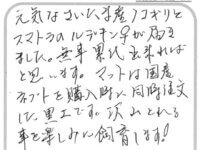 元気な 産ノコギリと
スマトラのルデキン が届き
ました。無事累代出来れば
と思います。マットは国産
ネブトを購入時に同時注文
した黒土です。沢山とれる
事を楽しみに飼育します!